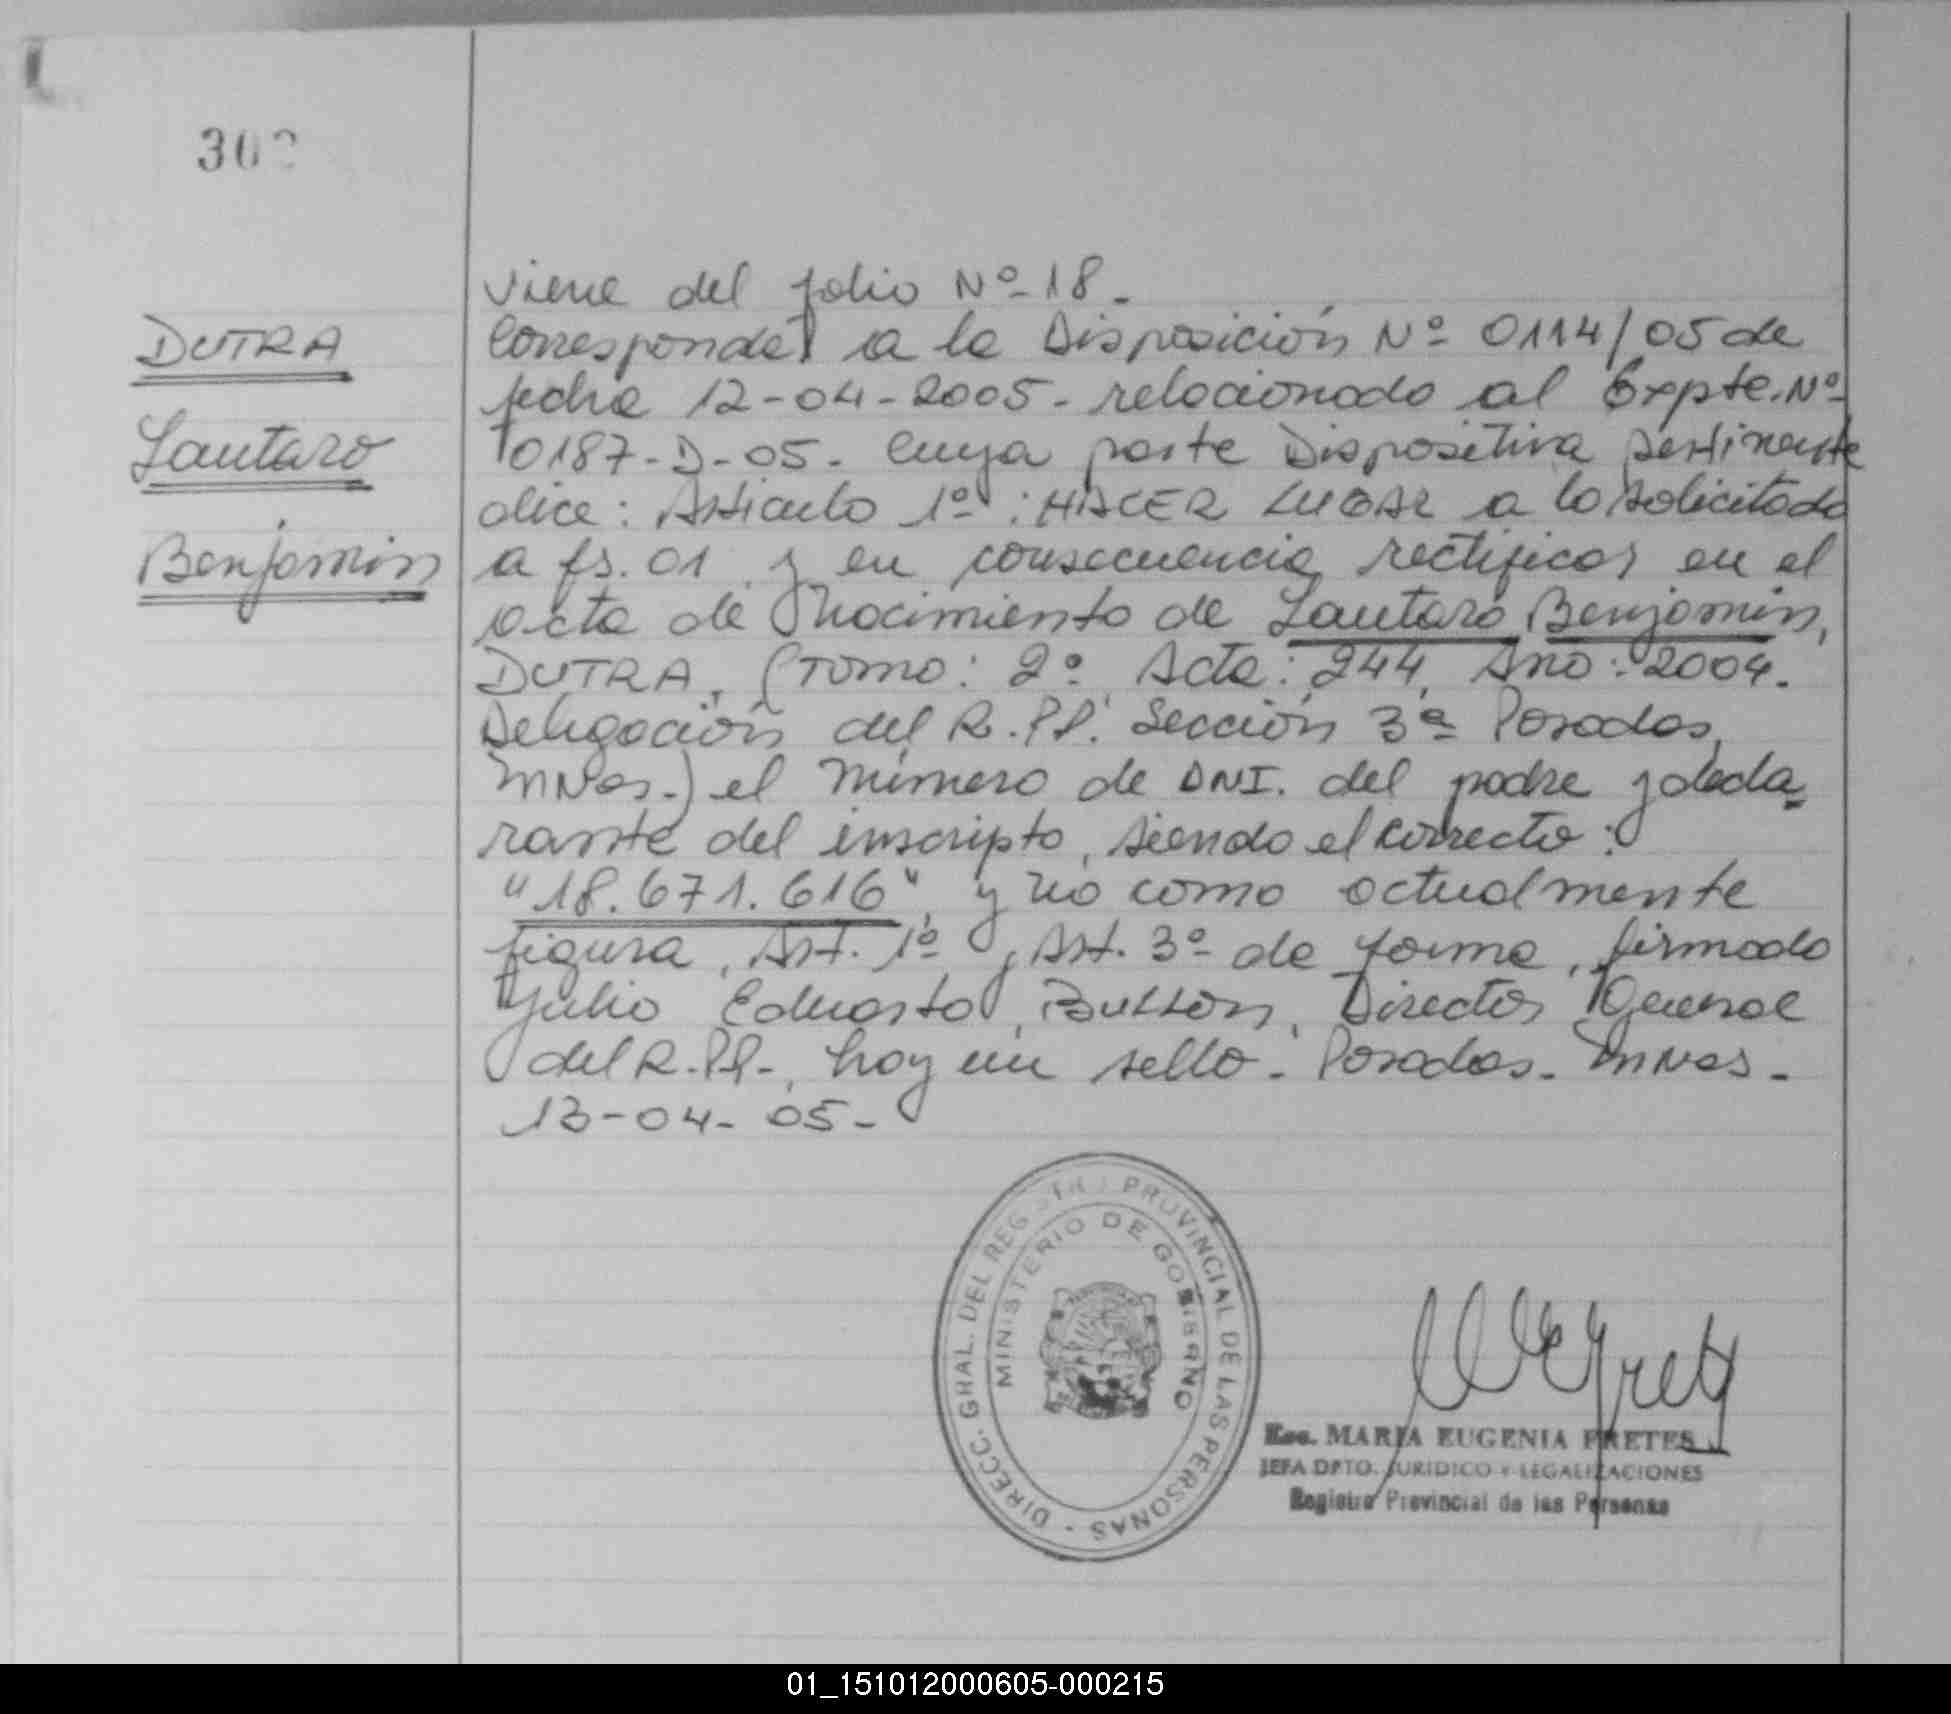 302
DUTRA
Lautaro
Benjamin
Viene del folio Nº 18.-
Corresponde a la Disposición Nº 0114/05 de
fecha 12-04-2005- relacionado al Expte. Nº
0187-D-05- Cuya parte Dispositiva pertinente
dice: Articulo 1º: HACER LUGAR a lo solicitado
a fs. 01 y en consecuencia rectificar en el
acta de Nacimiento de Lautaro Benjamin,
DUTRA, (Tomo: 2º Acta: 244, Año: 2004.
Delegación del R.P.P. Sección 3ª Posadas,
Mnes.) el número de DNI. del padre y decla-
rante del inscripto, siendo el correcto:
"18.671.616", y no como actualmente
figura, Art. 1º, Art. 3º de forma, firmado
Julio Eduardo, Director General
del R.P.P.-, hay un sello- Posadas- Mnes-
13-04-05-
DIRECC. GRAL. DEL REGISTRO PROVINCIAL DE LAS PERSONAS -
MINISTERIO DE GOBIERNO
Esc. MARIA EUGENIA FRETES
JEFA DPTO. JURIDICO Y LEGALIZACIONES
Registro Provincial de las Personas
01_151012000605-000215